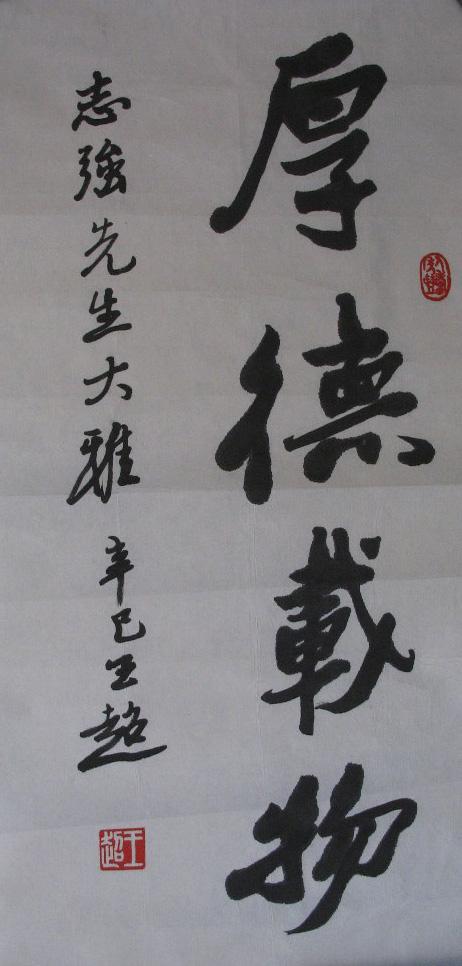 厚德載物
志強先生大雅
辛巳王超
王超